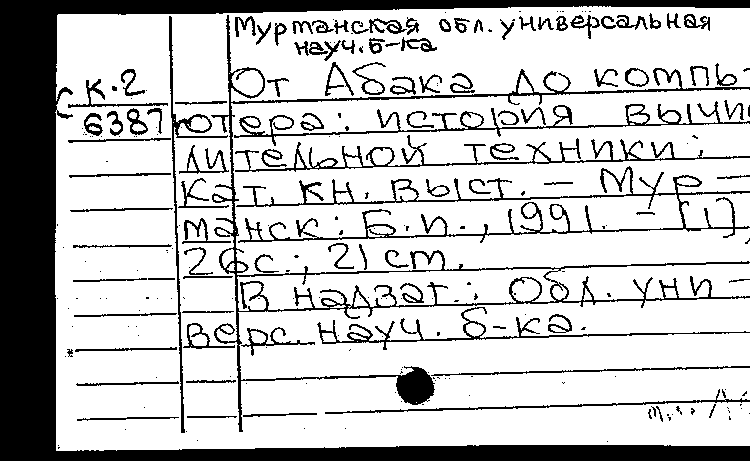 Мурманская обл. универсальная
науч. б-ка
С К-2
6387
От Абака до компь-
ютера: история вычис
лительной техники:
Кат. кн. выст. — Мур-
манск: Б.и., 1991. — [1],
26с.; 21 cm.
В надзаг.: Обл. уни-
верс. науч. б-ка.